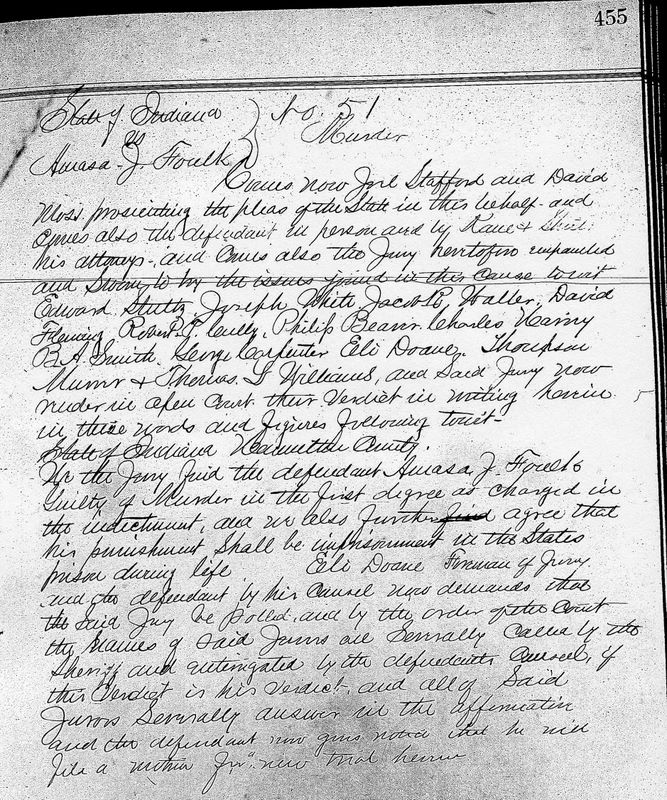 455
State of Indiana
vs
Amasa J. Foulk
No 51
Murder
Comes now Joel Stafford and David
Moss prosecuting the pleas of the State in this behalf and
comes also the defendant in person and by Kane &
his attorneys, and comes also the Jury heretofore empaneled
and Sworn to try the issues joined in this Cause towit
Edward Stultz, Joseph White, Jacob Waller, David
Fleming, Robert Cully, Philip Beaver, Charles
B. A. Smith, George Carpenter, Eli Doane, Thompson
& Thomas Williams, and Said Jury now
render in open Court their Verdict in writing herein
in these words and figures following towit-
State of Indiana Hamilton County.
We the Jury find the defendant Amasa J. Foulk
Guilty of Murder in the first degree as charged in
the indictment, and we also further find agree that
his punishment Shall be imprisonment in the States
prison during life Eli Doane Foreman of Jury
and the defendant by his Counsel now demands that
the Said Jury be Polled, and by the order of the Court
the Names of Said Jurors are Severally Called by the
Sheriff and interrogated by the defendants Counsel, if
this Verdict is his Verdict, and all of Said
Jurors Severally answer in the affirmative
and the defendant now gives notice that he will
file a motion for new trial herein